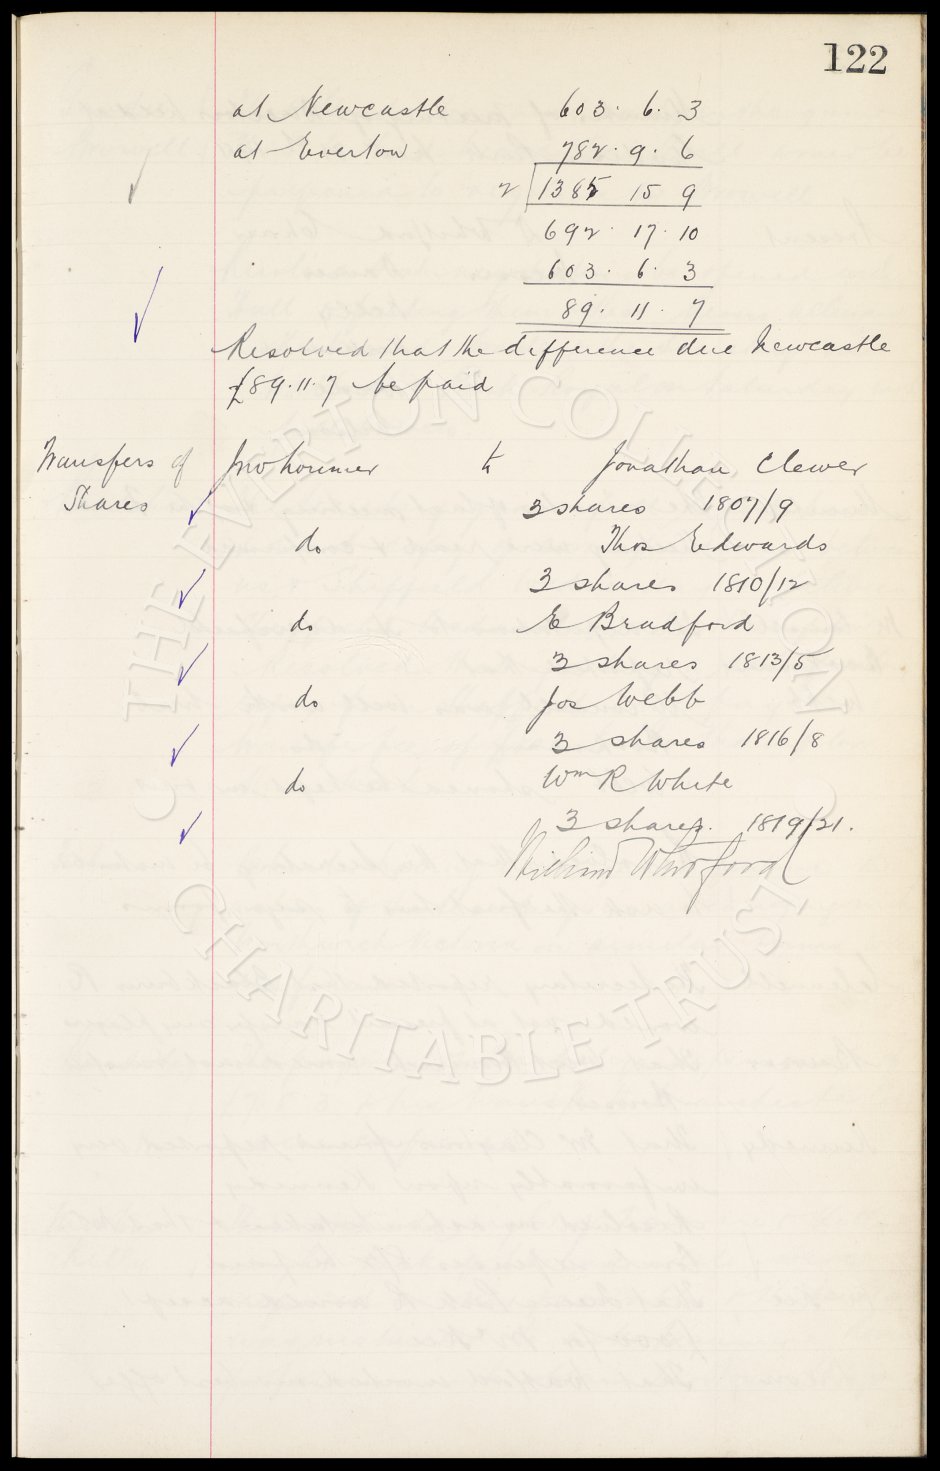 122
at Newcastle 603. 6. 3
at Everton 782. 9. 6
2 1385 15 9
692. 17. 10
603. 6. 3
89. 11. 7
Resolved that the difference due Newcastle
£89.11.7 be paid
Transfers of Shares
Jno to Jonathan Clewer
3 shares 1807/9
do Thos Edwards
3 shares 1810/12
do E Bradford
3 shares 1813/5
do Jos Webb
3 shares 1816/8
do Wm R White
3 shares. 1819/21.
THE EVERTON COLLECTION
CHARITABLE TRUST